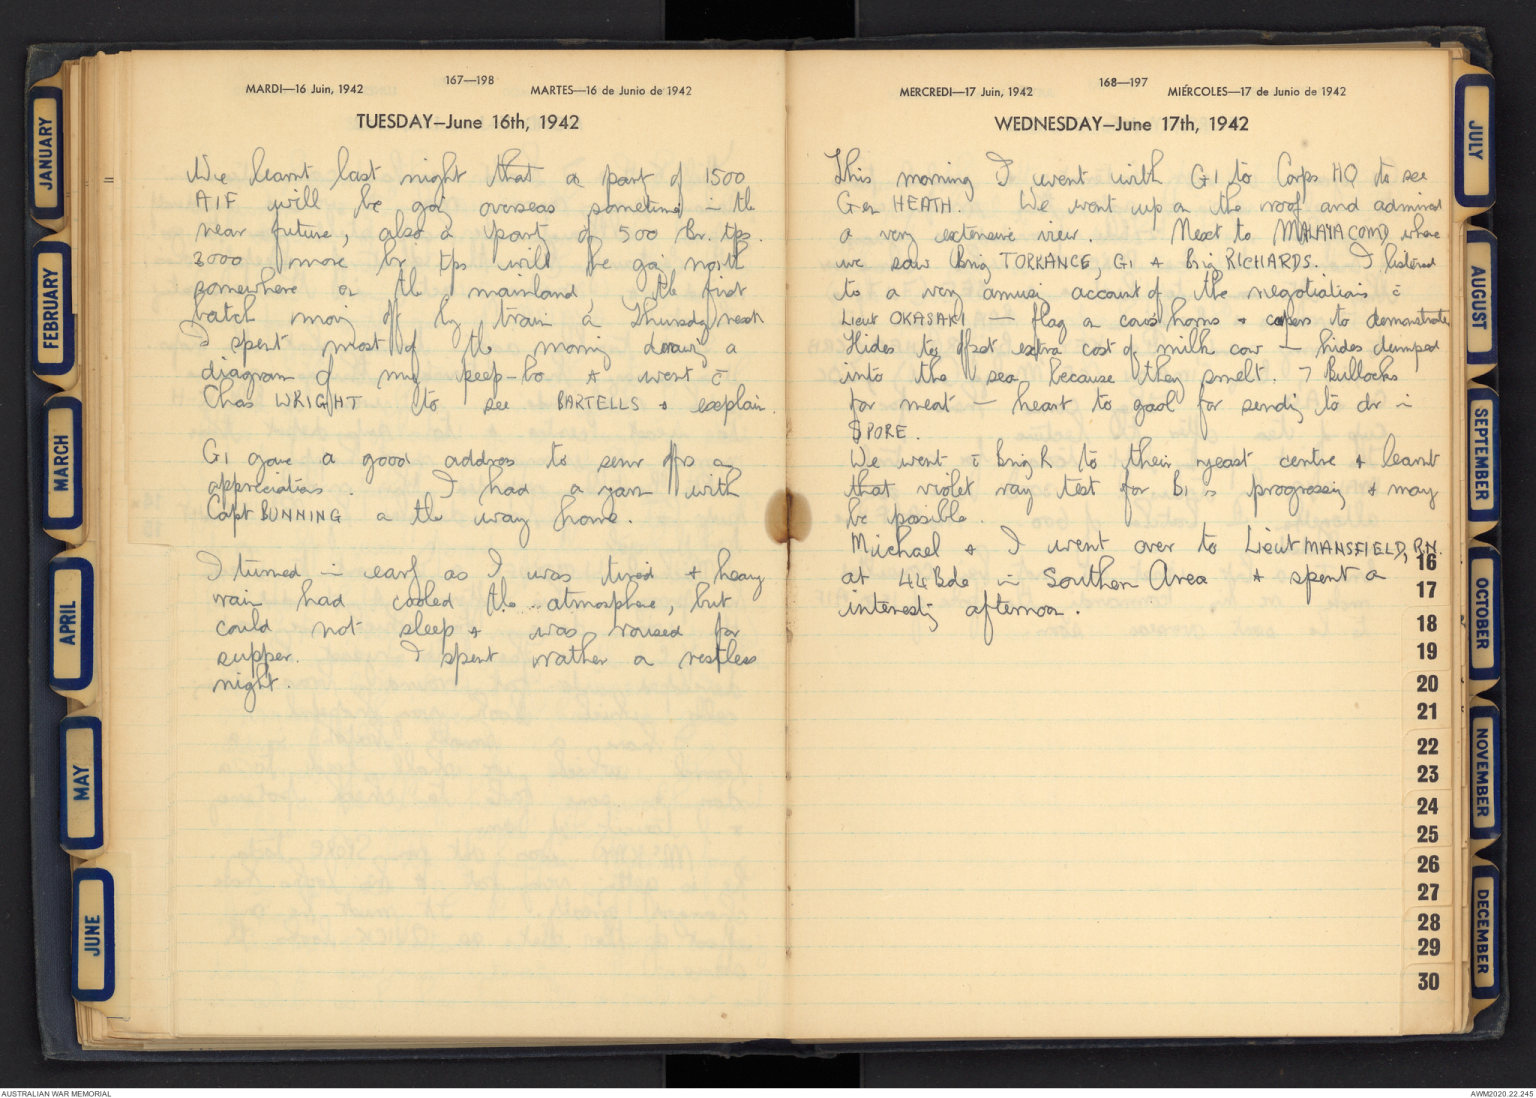 MARDI—16 Juin, 1942
167—198
MARTES—16 de Junio de 1942
TUESDAY—June 16th, 1942
We learnt last night that a party of 1500
AIF will be going overseas sometime in the
near future, also a party of 500 Br. tps.
3000 more br tps will be going north
somewhere on the mainland, the first
batch moving off by train on Thursday next
I spent most of the morning drawing a
diagram of my peep-bo & went c̄
Chas WRIGHT to see BARTELLS & explain.
G1 gave a good address to senr offrs on
appreciations. I had a yarn with
Capt BUNNING on the way home.
I turned in early as I was tired & heavy
rain had cooled the atmosphere, but
could not sleep & was roused for
supper. I spent rather a restless
night.
MERCREDI—17 Juin, 1942
168—197
MIÉRCOLES—17 de Junio de 1942
WEDNESDAY—June 17th, 1942
This morning I went with G1 to Corps HQ to see
Gen HEATH. We went up on the roof and admired
a very extensive view. Next to MALAYA COMD where
we saw Brig TORRANCE, G1 & Brig RICHARDS. I listened
to a very amusing account of the negotiations c̄
Lieut OKASAKI — flag on cow's horns & capers to demonstrate
Hides to offset extra cost of milk cow — hides dumped
into the sea because they smelt. 7 Bullocks
for meat — heart to gaol for sending to dr in
S'PORE.
We went c̄ Brig R to their yeast centre & learnt
that violet ray test for B1 is progressing & may
be possible.
Michael & I went over to Lieut MANSFIELD, RN.
at 44 Bde in Southern Area & spent an
interesting afternoon.
JANUARY
FEBRUARY
MARCH
APRIL
MAY
JUNE
JULY
AUGUST
SEPTEMBER
OCTOBER
NOVEMBER
DECEMBER
16
17
18
19
20
21
22
23
24
25
26
27
28
29
30
AUSTRALIAN WAR MEMORIAL
AWM2020.22.245